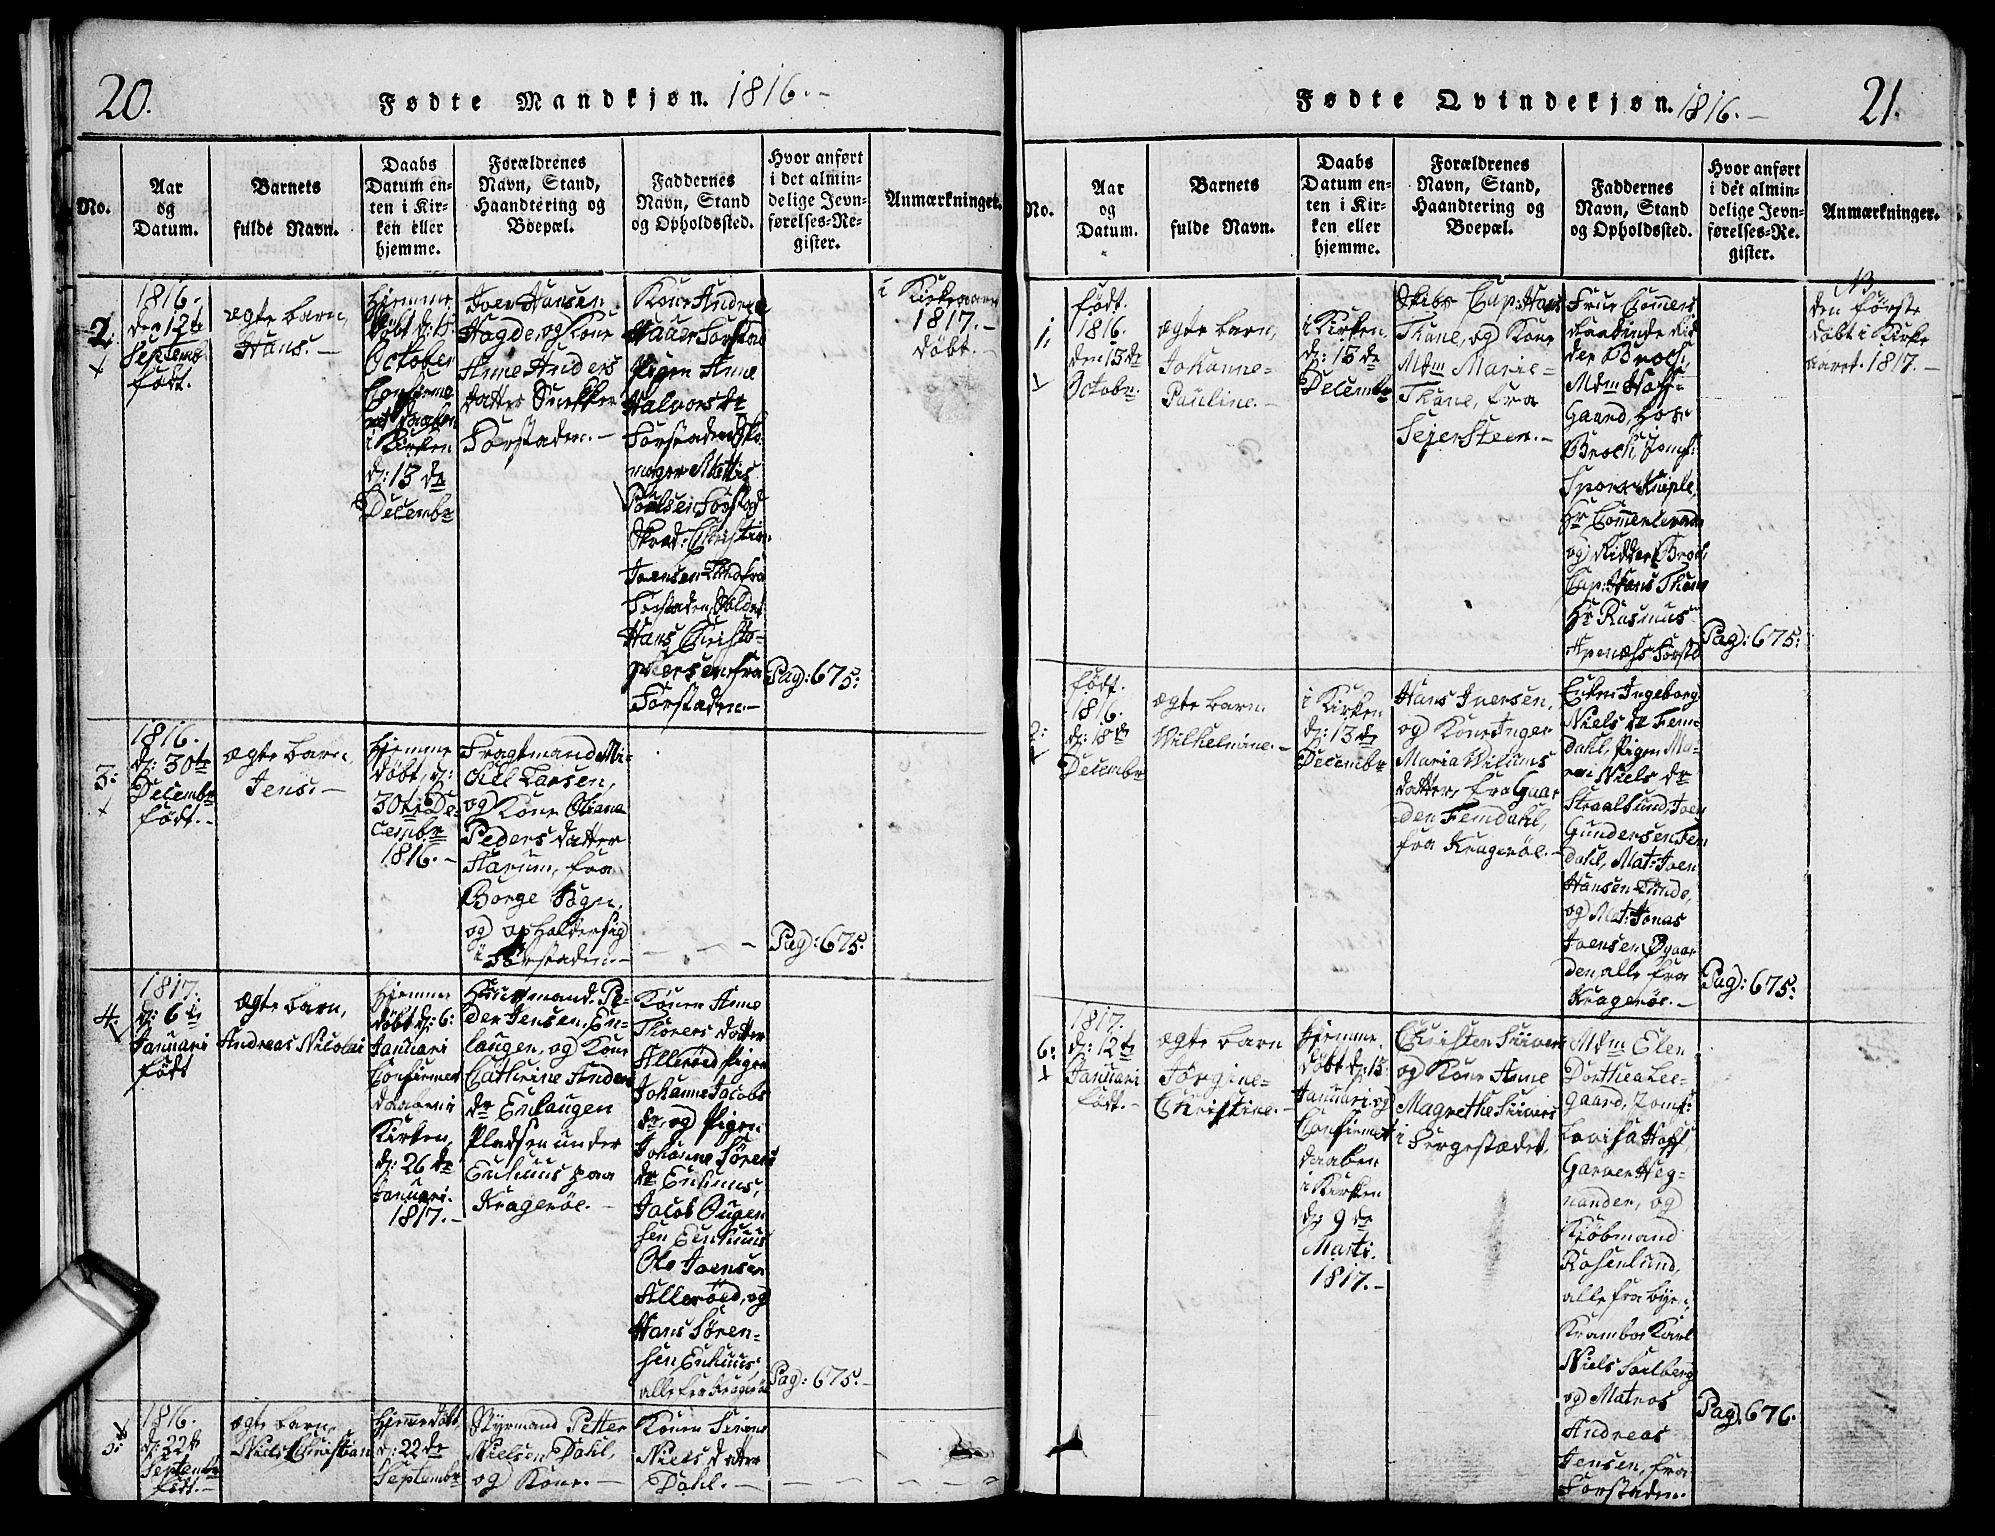 20.
Fødte Mandkjøn. 1816.-
No.
Aar
og
Datum.
Barnets
fulde Navn.
Daabs
Datum en-
ten i Kir-
ken eller
hjemme.
Forældrenes
Navn, Stand,
Haandtering og
Boepæl.
Faddernes
Navn, Stand
og Opholdssted.
Hvor anført
i det almin-
delige Jevn-
førelses-Re-
gister.
Anmærkninger.
2.
1816.
den 12te
Septemb.
født.
ægte barn,
Hans.-
hjemme
døbt d: 15
October
i Kirken
d: 13 de
Decembr
Joen Hansen
Hagden, og Kone
Anne Anders
datter Snekker
Forstaden.-
Kone Andrea
Pigen Anne
Halvors Dr
Forstaden, Sko
mager Mattis
Poulsen Forstad
Christian
Joensen Lund fra
Forstaden,
Hans Christo-
phersen fra
Forstaden.-
Pag: 675:
i Kirkeaaret
1817.-
døbt.-
3:
1816.
d: 30te
Decembr
født.-
ægte barn,
Jens.-
hjemme
døbt, d:
30te De-
cembr
1816.-
Fragtmand Mi-
chel Larsen,
og Kone Oliana
Peders datter
Starum, fra
Borge Sogn,
og opholder sig
i Forstaden.-
Pag: 675:
4:
1817.
d: 6te
Januari
født
ægte barn,
Andreas Nicolai
hjemme
døbt d: 6:
Januari
Confirmert
daaben i
Kirken,
d: 26 de
Januari.
1817.-
Huusmand Pe-
der Jensen, En-
laugen, og Kone
Cathrine Anders
dr Enlaugen
Pladsen under
Enhuus paa
Kragerøe.-
Konen Anne
Thorers datter
Allerød Pigen
Johanne Jacobs
dr, og Pigen
Johanne Sørens
dr Enhuus,
Jacob Ougen
sen Enhuus
Ole Joensen
Allerøed, og
Hans Søren-
sen Enhuus
alle fra Kragerøe
Pag: 675.-
5:
1816.
d: 22de
Septembr
født.-
ægte barn,
Niels Christian
hjemmedøbt,
d: 22 de
Septembr
Styrmand Petter
Nielsen Dahl,
og Kone.-
Konen
Niels datter
Dahl.-
21.
Fødte Qvindekjøn. 1816.-
No.
Aar
og
Datum.
Barnets
fulde Navn.
Daabs
Datum en-
ten i Kir-
ken eller
hjemme.
Forældrenes
Navn, Stand,
Haandtering og
Boepæl.
Faddernes
Navn, Stand
og Opholdssted.
Hvor anført
i det almin-
delige Jevn-
førelses-Re-
gister.
Anmærkninger.
1.
født.
1816.
den 15de
Octobr:
ægte barn,
Johanne-
Pauline.-
i Kirken
d: 13 de
Decembr
Skibs Cap: Hans
Thane, og Kone
Mdm Marie-
Thane, fra
Sejersteen.-
Frue Comers
raadinde Rid
der Broch,
Mdm Hass-
Gaard, hos
Broch, Jomf:
Hr Comerceraad
og Ridder Broch
Cap: Hans Thane
Hr Rasmus
Apenæss Forstd
Pag: 675:
NB
den første
døbt i Kirke
aaret 1817.-
2:
født.
1816.
d: 18de
Decembr
ægte barn
Wilhelmine.-
i Kirken
d: 13 de
Decembr
Hans Iversen,
og Kone Inger
Maria Wilums
datter, fra Gaar
den Femdahl,
fra Kragerøe.-
Enken Ingeborg
Niels dr Fem
dahl, Pigen Ma-
ren Niels dr
Straalsund, Joen
Gundersen Fem
dahl, Mat: Joen
Hansen Lunde,
og Mat: Jonas
Joensen Øygaar
den alle fra
Kragerøe.-
Pag: 675:
6:
1817.
d: 12te
Januari
født.-
ægte barn
Jørgine-
Christine.-
hjemme
døbt d: 13
Januari, og
Confirmert
daaben
i Kirken
d: 9 de
Marti.
1817.-
Christen Siivers
og Kone Anne
Magrethe Siivers
i Bergestædet.
Mdm Elen
Dorthea Lee-
gaard, Jomf:
Lovisa Hoff,
Garver Heg-
nander, og
Kiøbmand
Rosenlund,
alle fra bye:,
Krambod Karl
Niels Solberg
og Matros
Andreas
Jensen, fra
Forstaden.-
Pag. 676.